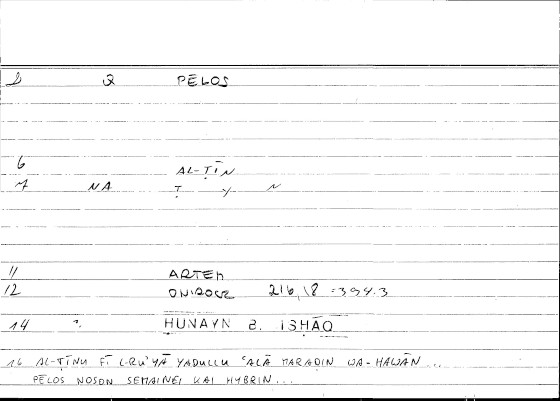 2 PĒLOS
6 AL-ṬĪN
7 NA Ṭ Y N
11 ARTEM
12 ONIROCR 216,18 = 394.3
14 ḤUNAYN B. ISḤĀQ
16 AL-ṬĪNU FĪ L-RU'YĀ YADULLU 'ALĀ MARAḌIN WA-HAWĀN...
PĒLOS NOSON SĒMAINEI KAI HYBRIN...